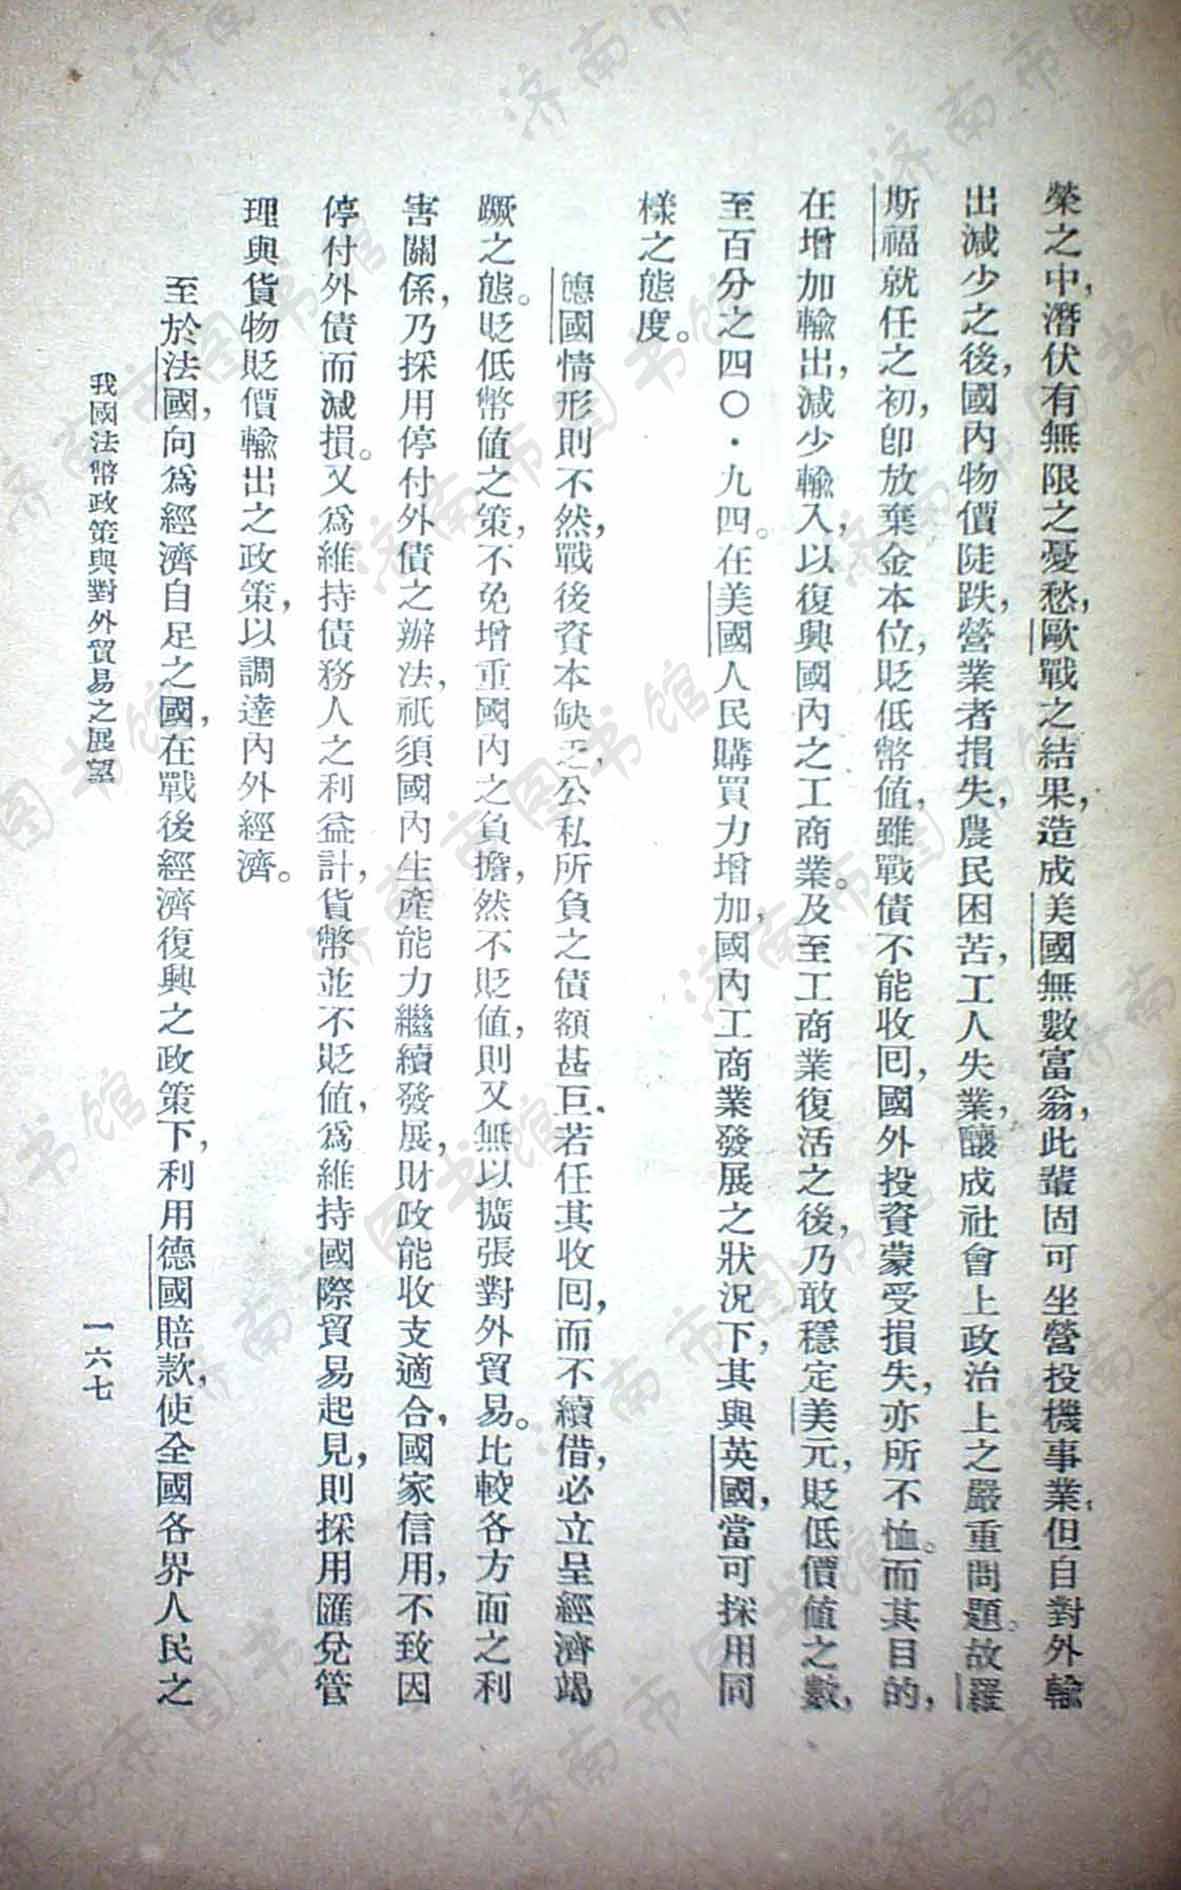 榮之中，潛伏有無限之憂愁，歐戰之結果，造成美國無數富翁，此輩固可坐營投機事業，但自對外輸
出減少之後，國內物價陡跌，營業者損失，農民困苦，工人失業，釀成社會上政治上之嚴重問題。故羅
斯福就任之初，卽放棄金本位，貶低幣值，雖戰債不能收回，國外投資蒙受損失，亦所不恤。而其目的，
在增加輸出，減少輸入，以復興國內之工商業。及至工商業復活之後，乃敢穩定美元，貶低價值之數，
至百分之四〇・九四。在美國人民購買力增加，國內工商業發展之狀況下，其與英國，當可採用同
樣之態度。
德國情形則不然，戰後資本缺乏，公私所負之債額甚巨，若任其收回，而不續借，必立呈經濟竭
蹶之態。貶低幣值之策，不免增重國內之負擔，然不貶值，則又無以擴張對外貿易。比較各方面之利
害關係，乃採用停付外債之辦法，祇須國內生產能力繼續發展，財政能收支適合，國家信用，不致因
停付外債而減損。又爲維持債務人之利益計，貨幣並不貶值，爲維持國際貿易起見，則採用匯兌管
理與貨物貶價輸出之政策，以調達內外經濟。
至於法國，向爲經濟自足之國，在戰後經濟復興之政策下，利用德國賠款，使全國各界人民之
我國法幣政策與對外貿易之展望
一六七
济南市图书馆